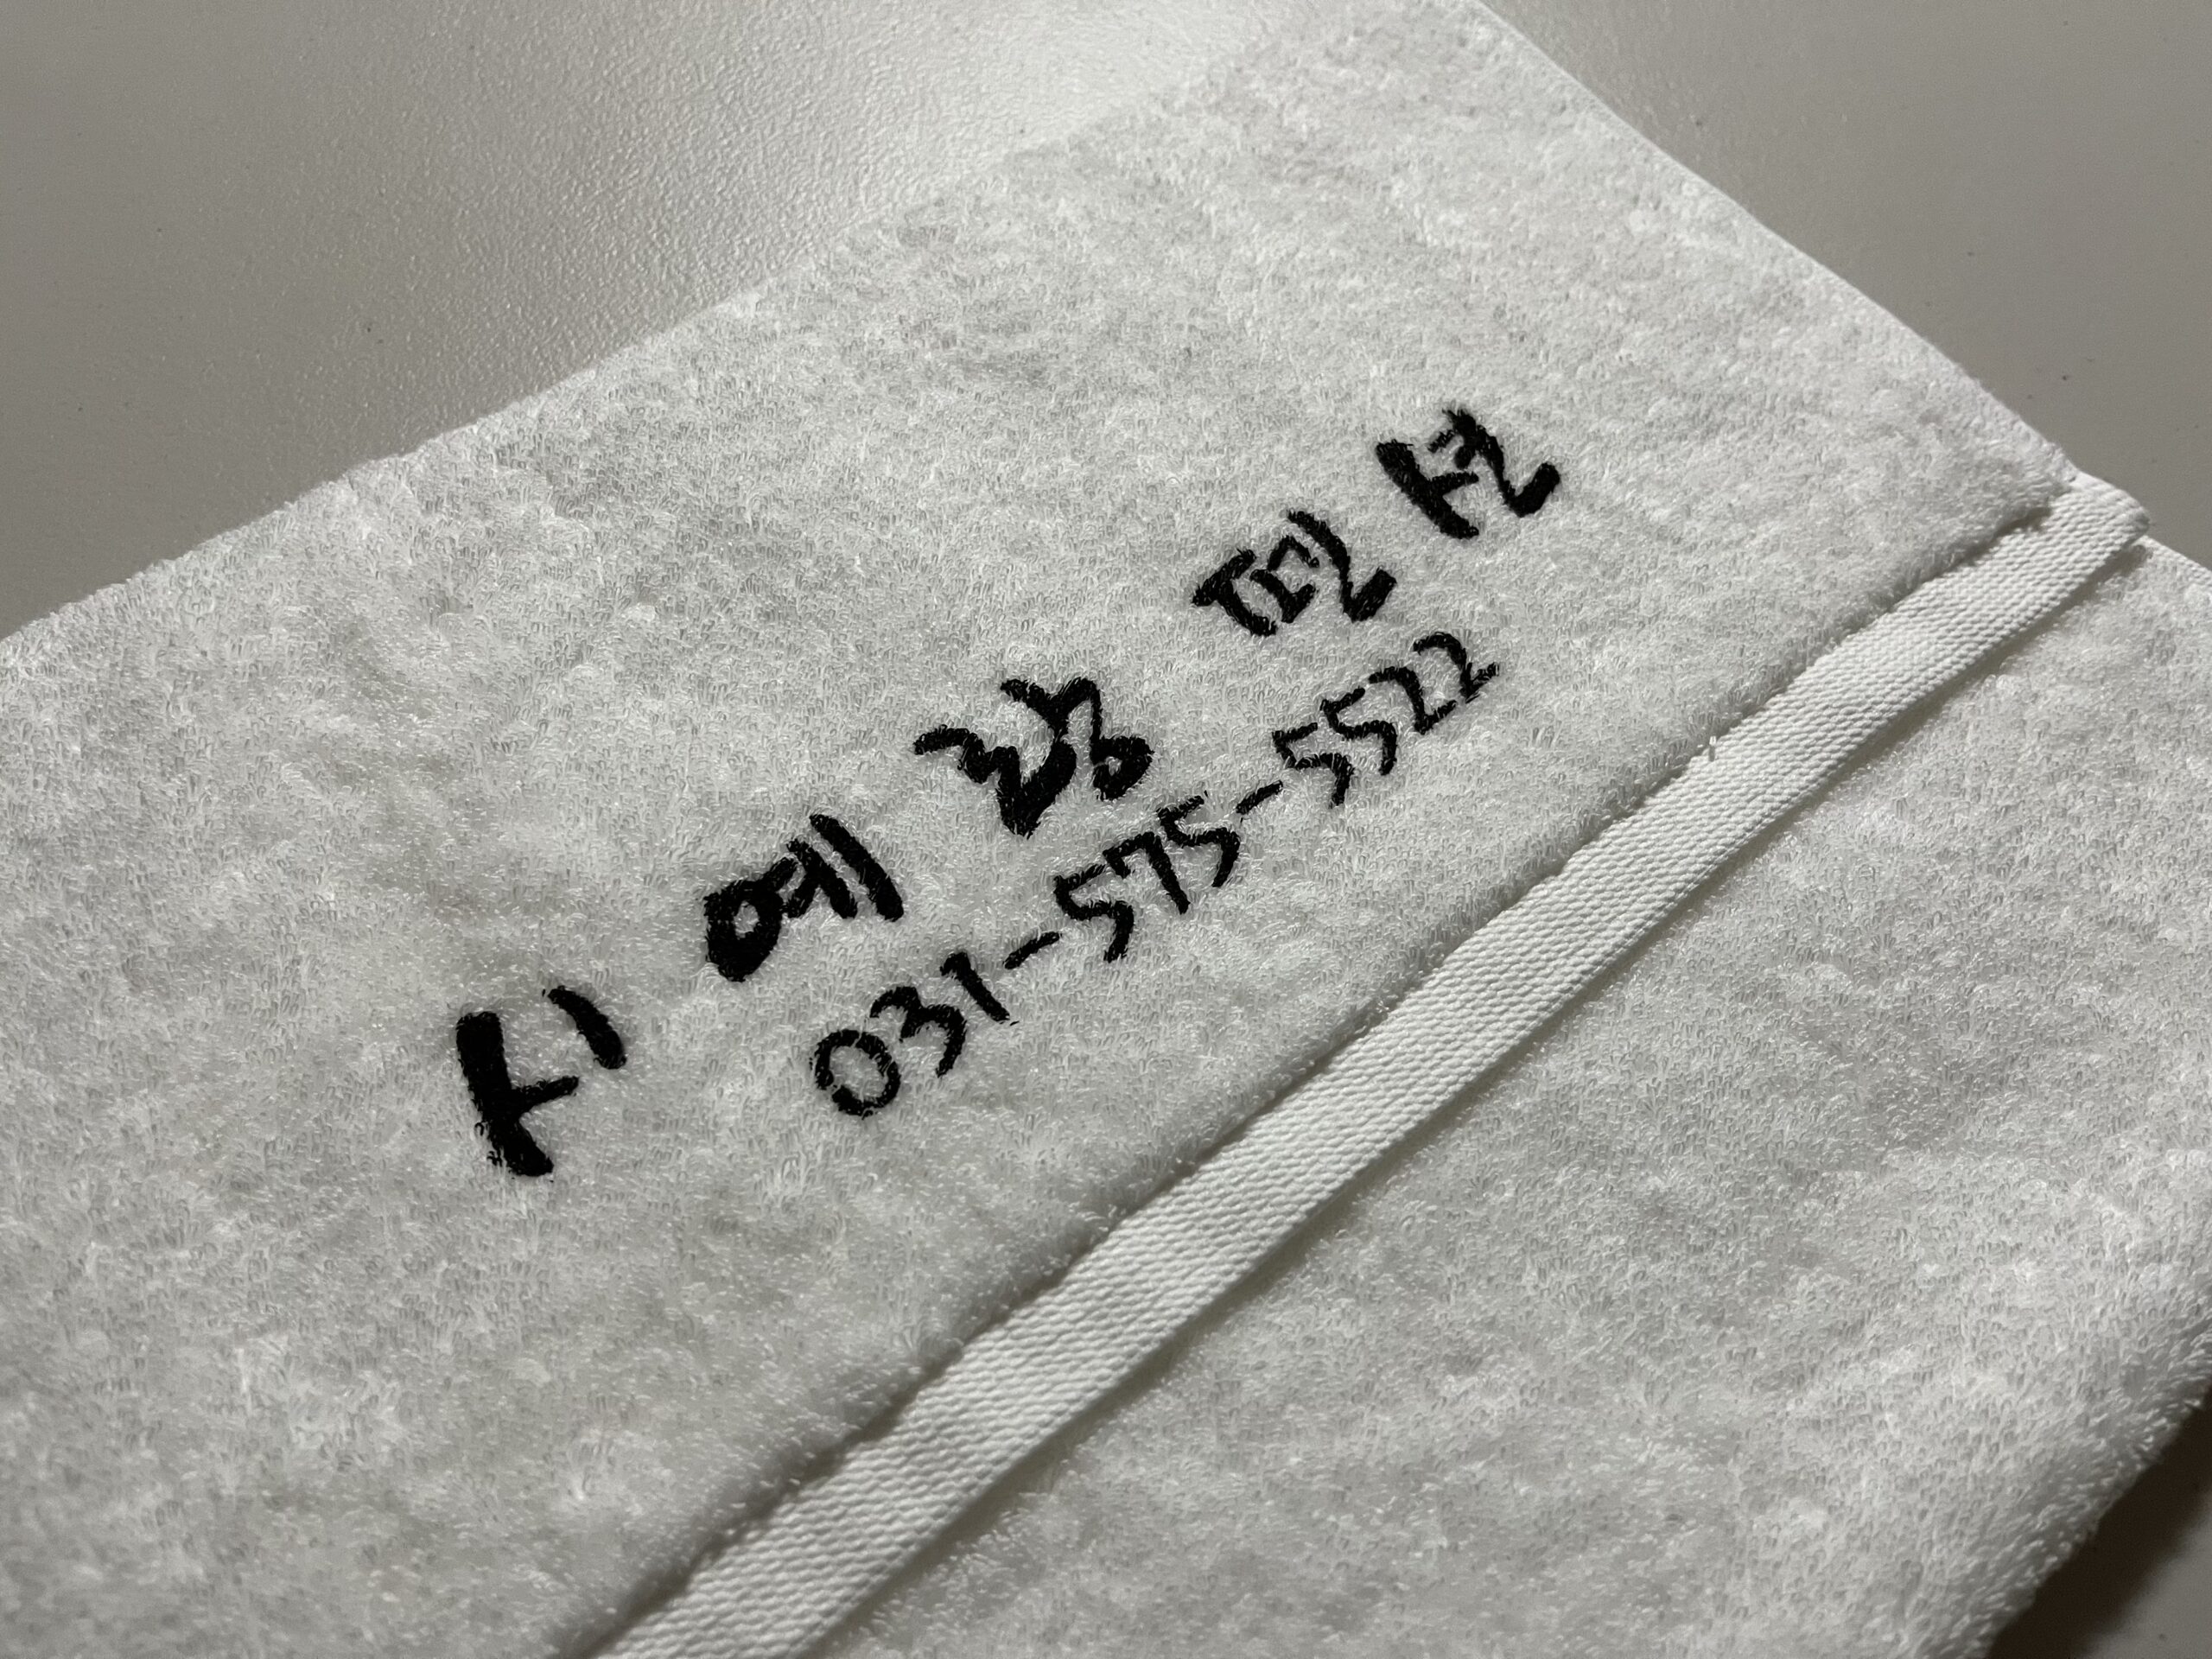 시 예 랑 펜 션
031-575-5522